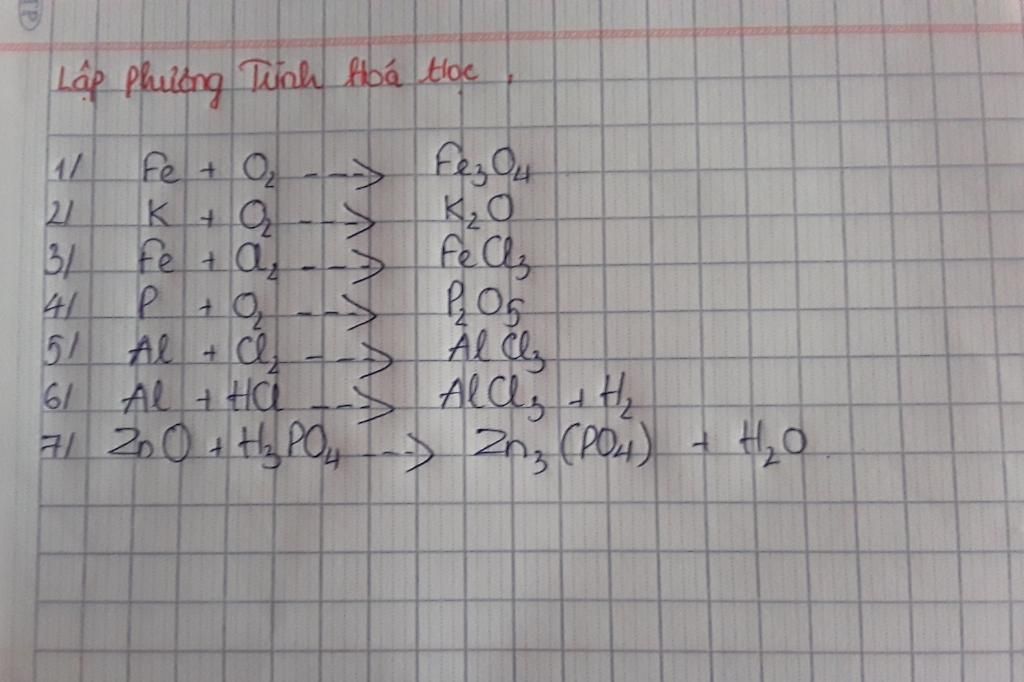 TP
Lập Phương Trình Hoá Học.
1/ Fe + O₂ ---> Fe₃O₄
2/ K + O₂ ---> K₂O
3/ Fe + Cl₂ ---> FeCl₃
4/ P + O₂ ---> P₂O₅
5/ Al + Cl₂ ---> AlCl₃
6/ Al + HCl ---> AlCl₃ + H₂
7/ ZnO + H₃PO₄ ---> Zn₃(PO₄) + H₂O.